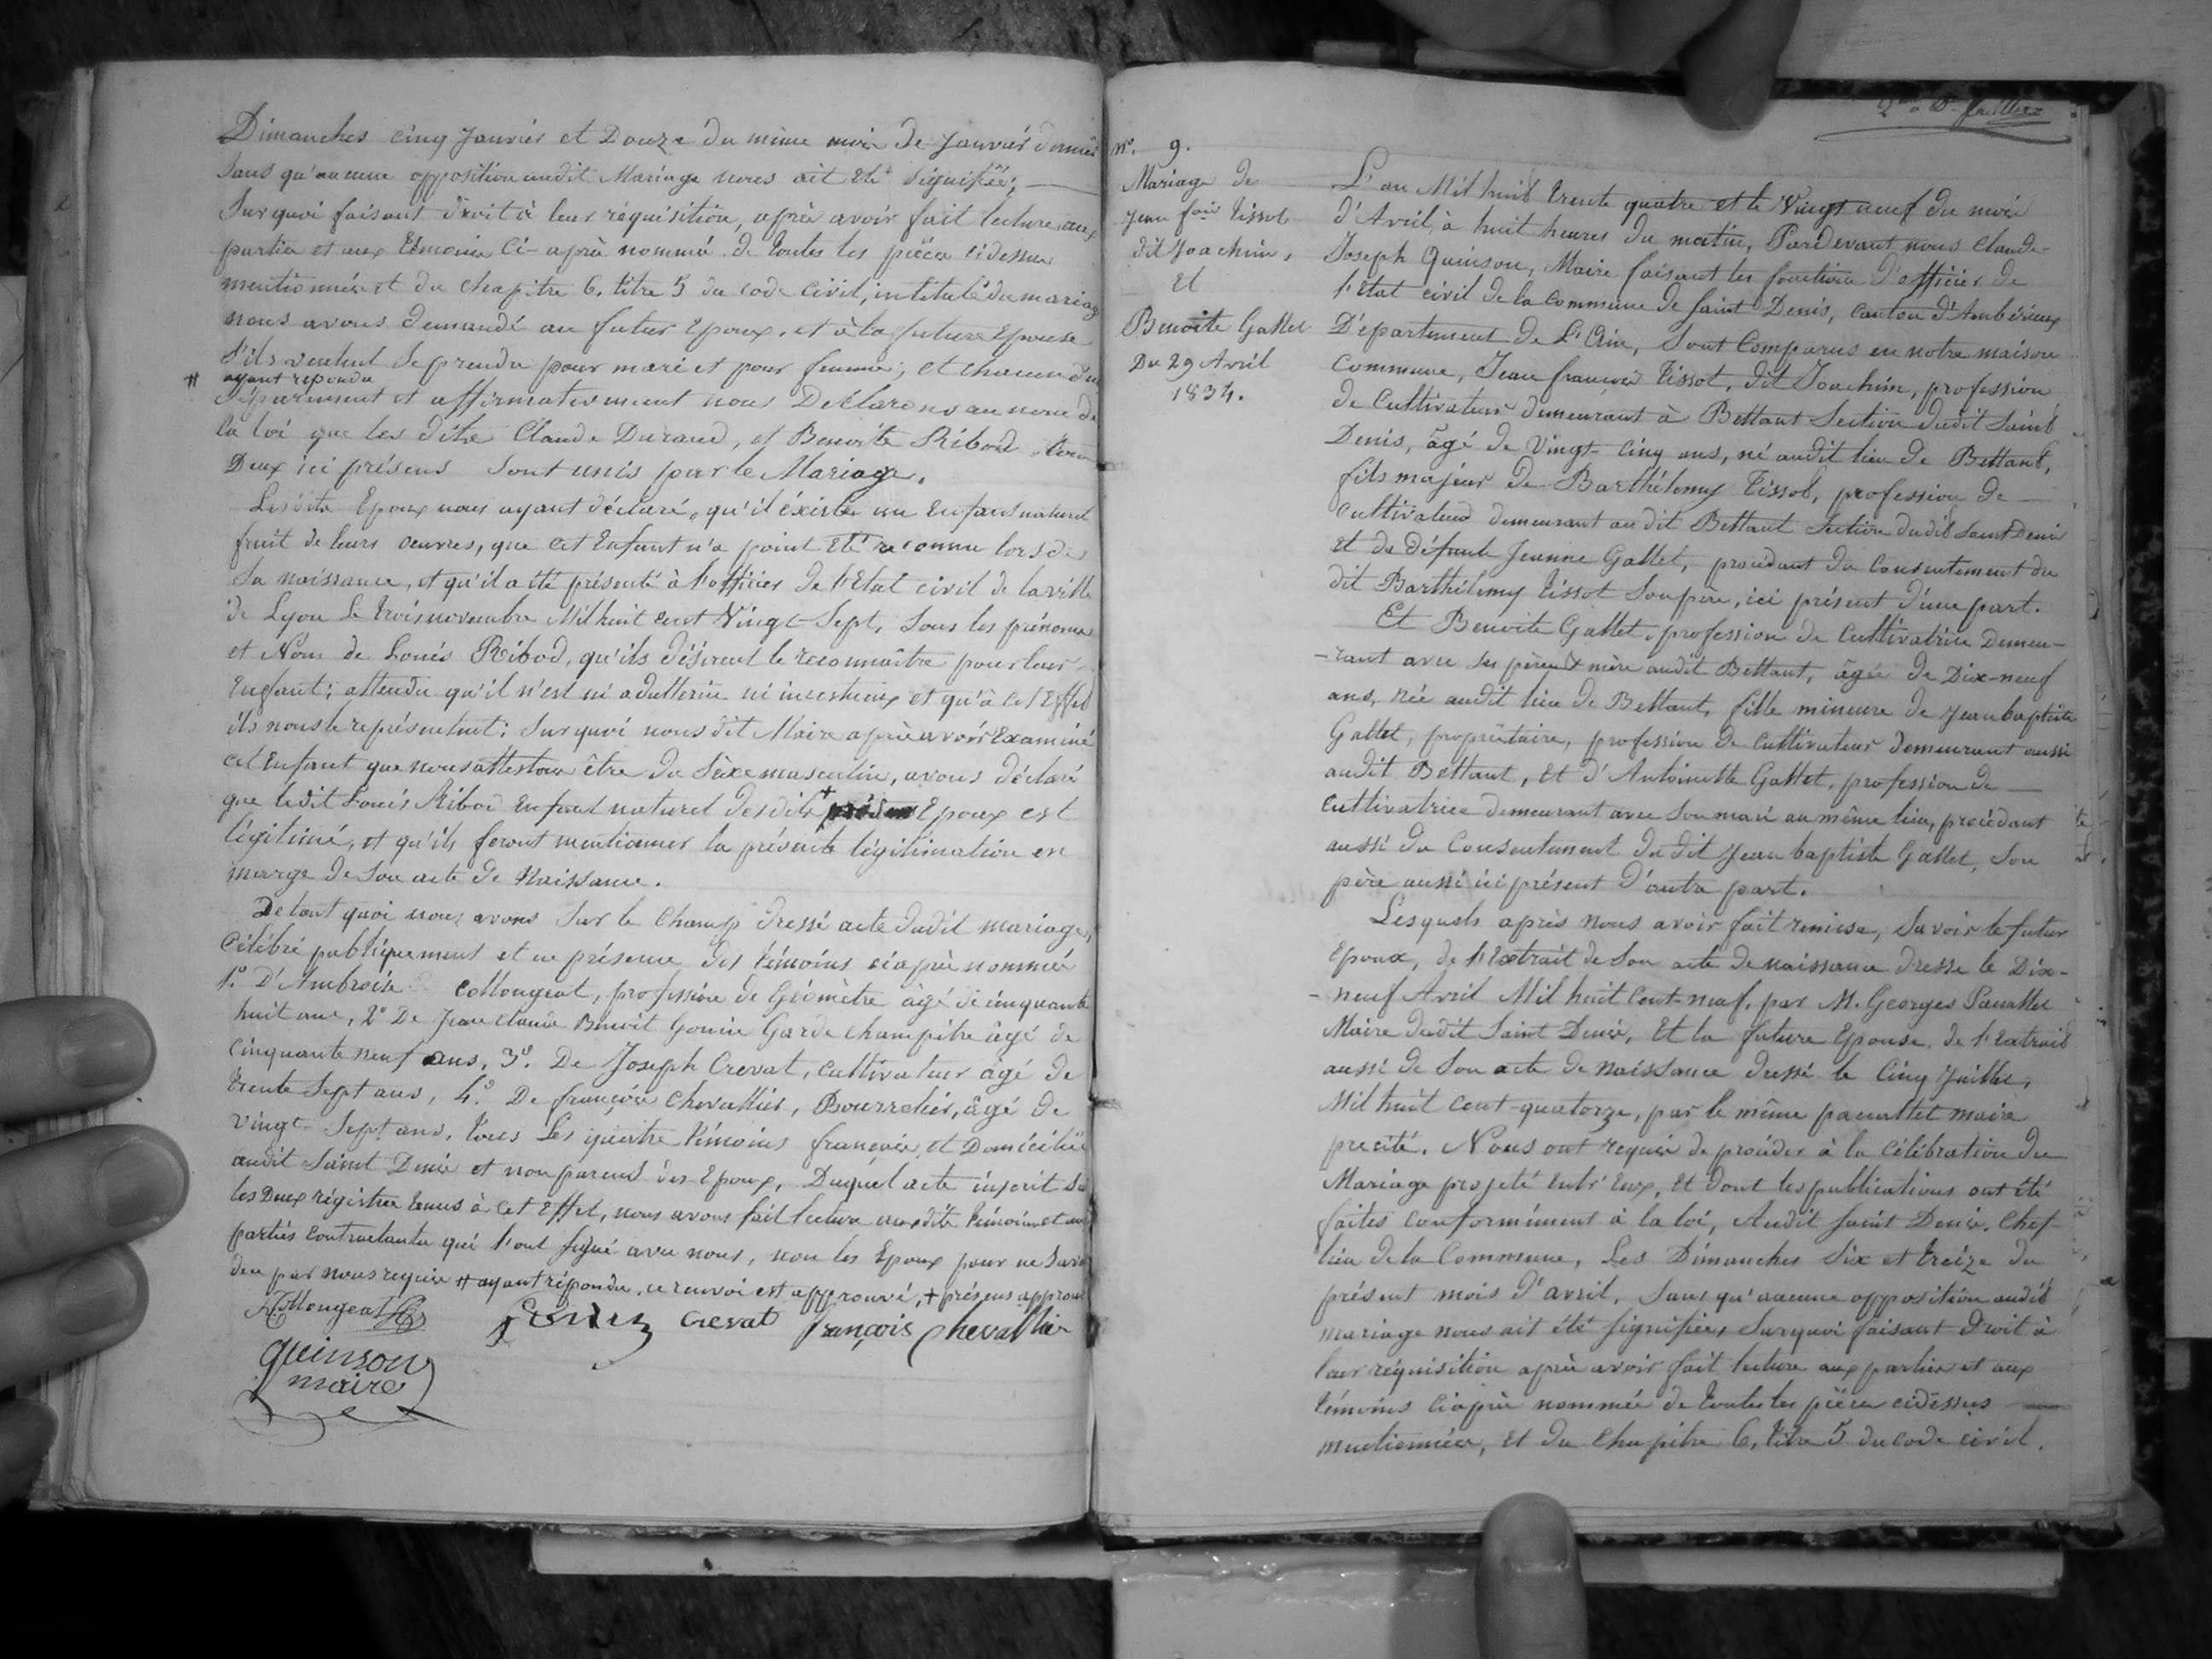 Dimanches cinq Janvier et Douze du même mois de Janvier dernier
sans qu'aucune opposition audit Mariage nous ait été signifiée;
Sur quoi faisant droit à leur réquisition, après avoir fait lecture aux
parties et aux témoins ci-après nommés de toutes les pièces cidessus
mentionnées et du chapitre 6. titre 5 du code civil, intitulé du mariage
nous avons demandé au futur Epoux, et à la future Epouse
s'ils veulent se prendre pour mari et pour femme; et chacun d'eux
# ayant répondu
séparément et affirmativement nous Déclarons au nom de
la loi que les dits Claude Durand, et Benoite Ribod
Deux ici présens sont unis par le Mariage.
Lesdits Epoux nous ayant déclaré, qu'il éxiste un Enfant naturel
fruit de leurs œuvres, que cet Enfant n'a point été reconnu lors de
sa naissance, et qu'il a été présenté à l'officier de l'Etat civil de la ville
de Lyon le trois novembre Mil huit cent Vingt-Sept, sous les prénoms
et Nom de Louis Ribod, qu'ils désirent le reconnaître pour leur
Enfant; attendu qu'il n'est ni adultérin ni incestueux et qu'à cet Effet
ils nous le représentent; sur quoi nous dit Maire après avoir Examiné
cet Enfant que nous attestons être du Sèxe masculin, avons déclaré
que ledit Louis Ribod Enfant naturel desdits + Epoux est
légitimé, et qu'ils feront mentionner la présente légitimation en
marge de son acte de Naissance.
De tout quoi nous avons sur le Champ dressé acte dudit mariage,
Célébré publiquement et en présence des témoins ciaprès nommés
1º. D'Ambroise Collongeat, profession de Géomètre âgé de cinquante
huit ans, 2º De Jean Claude Benoit Gouin Garde champêtre âgé de
cinquante neuf ans, 3º. De Joseph Crevat, cultivateur âgé de
trente Sept ans, 4º. De françois Chevallier, Bourrelier, âgé de
vingt-Sept ans, tous Les quatre témoins français, et Domiciliés
audit Saint Denis et non parens des Epoux, Duquel acte inscrit sur
les Deux régistres tenus à cet Effet, nous avons fait lecture auxdits témoins et aux
parties contractantes qui l'ont signé avec nous, non les Epoux pour ne savoir
de par nous requis # ayant répondu, ce renvoi est approuvé, + présens approuvé
Collongeat
Crevat françois Chevallier
quinson
maire
nº. 9.
Mariage de
Jean fois Tissot
dit Joachim,
Et
Benoite Gallet
Du 29 Avril
1834.
L'an Mil huit trente quatre et le Vingt neuf du mois
d'Avril, à huit heures du matin, Pardevant nous Claude-
Joseph Quinson, Maire faisant les fonctions d'officier de
l'Etat civil de la Commune de Saint Denis, canton d'Ambérieux
Département de L'Ain, Sont Comparus en notre maison
Commune, Jean françois Tissot, dit Joachim, profession
de Cultivateur demeurant à Bettant Section dudit Saint
Denis, âgé de Vingt-Cinq ans, né audit lieu de Bettant,
fils majeur de Barthélemy Tissot, profession de
Cultivateur demeurant audit Bettant Section dudit Saint Denis
et de défunte Jeanne Gallet, procédant du Consentement du
dit Barthélemy Tissot Son père, ici présent d'une part.
Et Benoite Gallet, profession de Cultivatrice Demeu-
-rant avec ses père et mère audit Bettant, âgée de Dix-neuf
ans, née audit lieu de Bettant, fille mineure de Jean baptiste
Gallet, propriétaire, profession de Cultivateur demeurant aussi
audit Bettant, et d'Antoinette Gallet, profession de
Cultivatrice demeurant avec son mari au même lieu, procédant
aussi du Consentement dudit Jean baptiste Gallet, son
père aussi ici présent d'autre part.
Lesquels après nous avoir fait remise, Savoir le futur
Epoux, de l'Extrait de Son acte de naissance dressé le Dix-
-neuf Avril Mil huit Cent-neuf, par M. Georges
Maire dudit Saint Denis, Et la future Epouse, de l'Extrait
aussi de Son acte de naissance dressé le Cinq Juillet,
Mil huit cent-quatorze, par le même maire
precité. Nous ont requis de procéder à la Célébration du
Mariage projeté entr'Eux, et dont les publications ont été
faites conformément à la loi, Audit Saint Denis, Chef
lieu de la Commune, Les Dimanches Six et treize du
présent mois d'avril, sans qu'aucune opposition audit
mariage nous ait été signifiée, Sur quoi faisant Droit à
leur réquisition après avoir fait lecture aux parties et aux
témoins ciaprès nommés de toutes les pièces cidessus
mentionnées, et du chapitre 6, titre 5 du code civil.